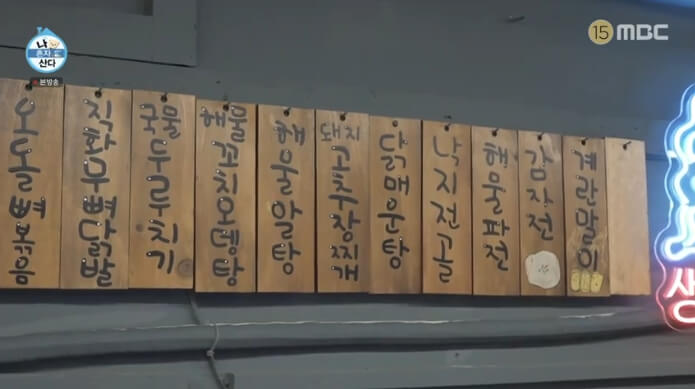 나 혼자 산다
본방송
15 MBC
오돌뼈볶음
직화무뼈닭발
국물두루치기
해물꼬치오뎅탕
해물알탕
돼지고추장찌개
닭매운탕
낙지전골
해물파전
감자전
계란말이
생